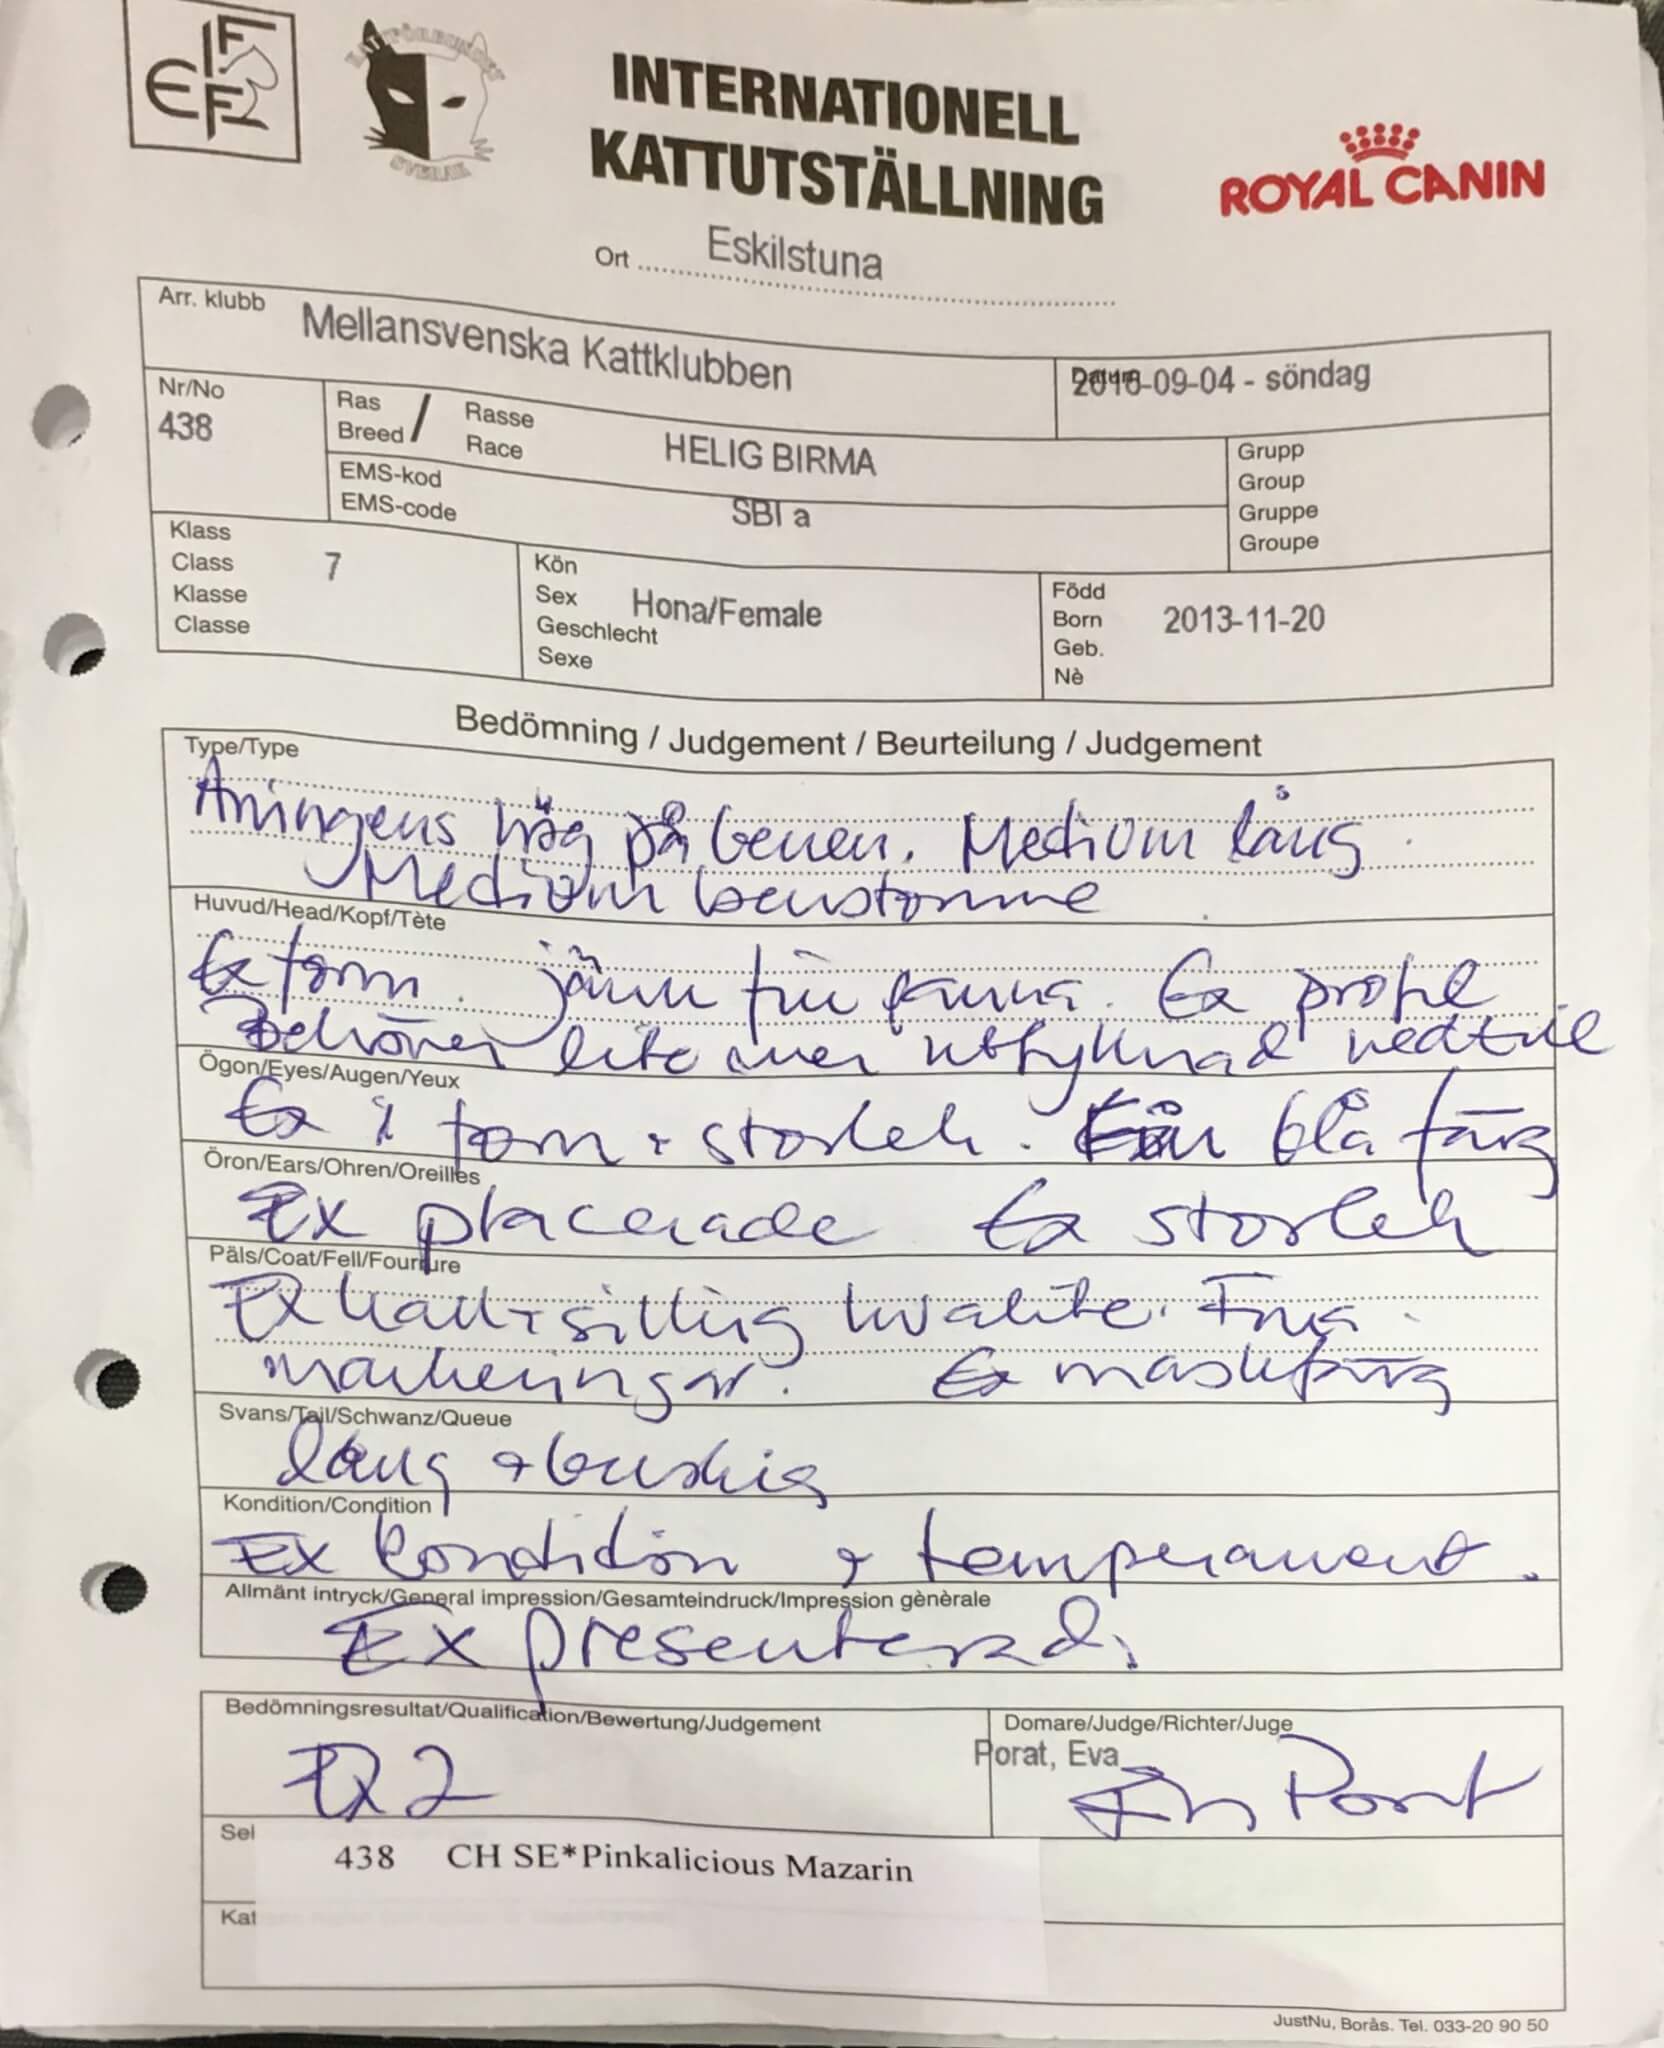 FIFE
KATTFÖRBUNDET
SVERAK
INTERNATIONELL
KATTUTSTÄLLNING
ROYAL CANIN
Ort Eskilstuna
Arr. klubb Mellansvenska Kattklubben
Datum 2016-09-04 - söndag
Nr/No
438
Ras Rasse
Breed / Race HELIG BIRMA
EMS-kod
EMS-code SBI a
Grupp
Group
Gruppe
Groupe
Klass
Class 7
Klasse
Classe
Kön
Sex Hona/Female
Geschlecht
Sexe
Född
Born 2013-11-20
Geb.
Nè
Bedömning / Judgement / Beurteilung / Judgement
Type/Type
Aningens hög på benen. Medium lång.
Medium benstomme
Huvud/Head/Kopf/Tète
Ex form. jämn fin panna. Ex profil
Behöver lite mer utfyllnad nedtill
Ögon/Eyes/Augen/Yeux
Ex i form + storlek. blå färg
Öron/Ears/Ohren/Oreilles
Ex placerade Ex storlek
Päls/Coat/Fell/Fourrure
Ex päls silkig kvalité. Fina
markeringar. Ex maskfärg
Svans/Tail/Schwanz/Queue
lång + buskig
Kondition/Condition
Ex kondition + temperament.
Allmänt intryck/General impression/Gesamteindruck/Impression gènèrale
Ex presenterad.
Bedömningsresultat/Qualification/Bewertung/Judgement
Ex 2
Domare/Judge/Richter/Juge
Porat, Eva
Eva Porat
Sel
438 CH SE*Pinkalicious Mazarin
Kat
JustNu, Borås. Tel. 033-20 90 50